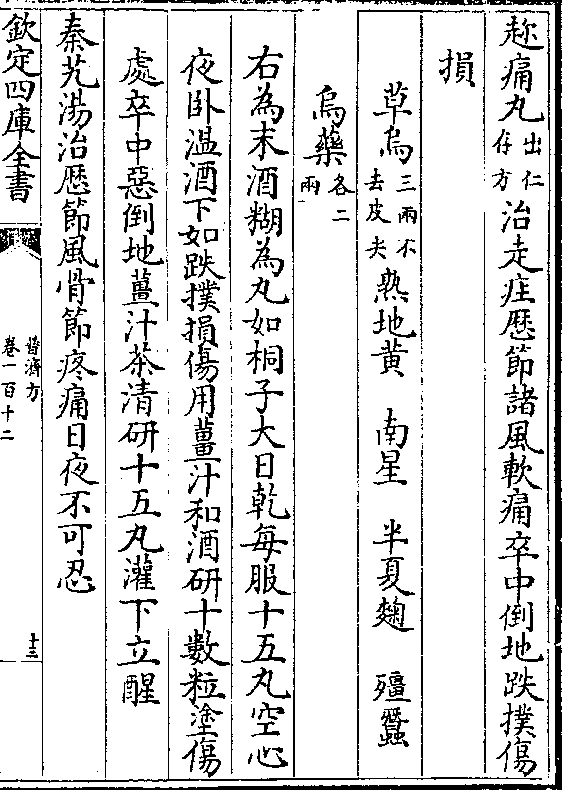 趂痛丸出仁存方治走疰歴節諸風軟痛卒中倒地跌撲傷
損
草烏三兩不去皮尖熟地黄　南星　半夏麴　殭蠶
烏藥各二兩
右為末酒糊為丸如桐子大日乾每服十五丸空心
夜卧温酒下如跌撲損傷用薑汁和酒研十數粒塗傷
處卒中惡倒地薑汁茶清研十五丸灌下立醒
秦艽湯治歴節風骨節疼痛日夜不可忍
欽定四庫全書
普濟方
卷一百十二
十三